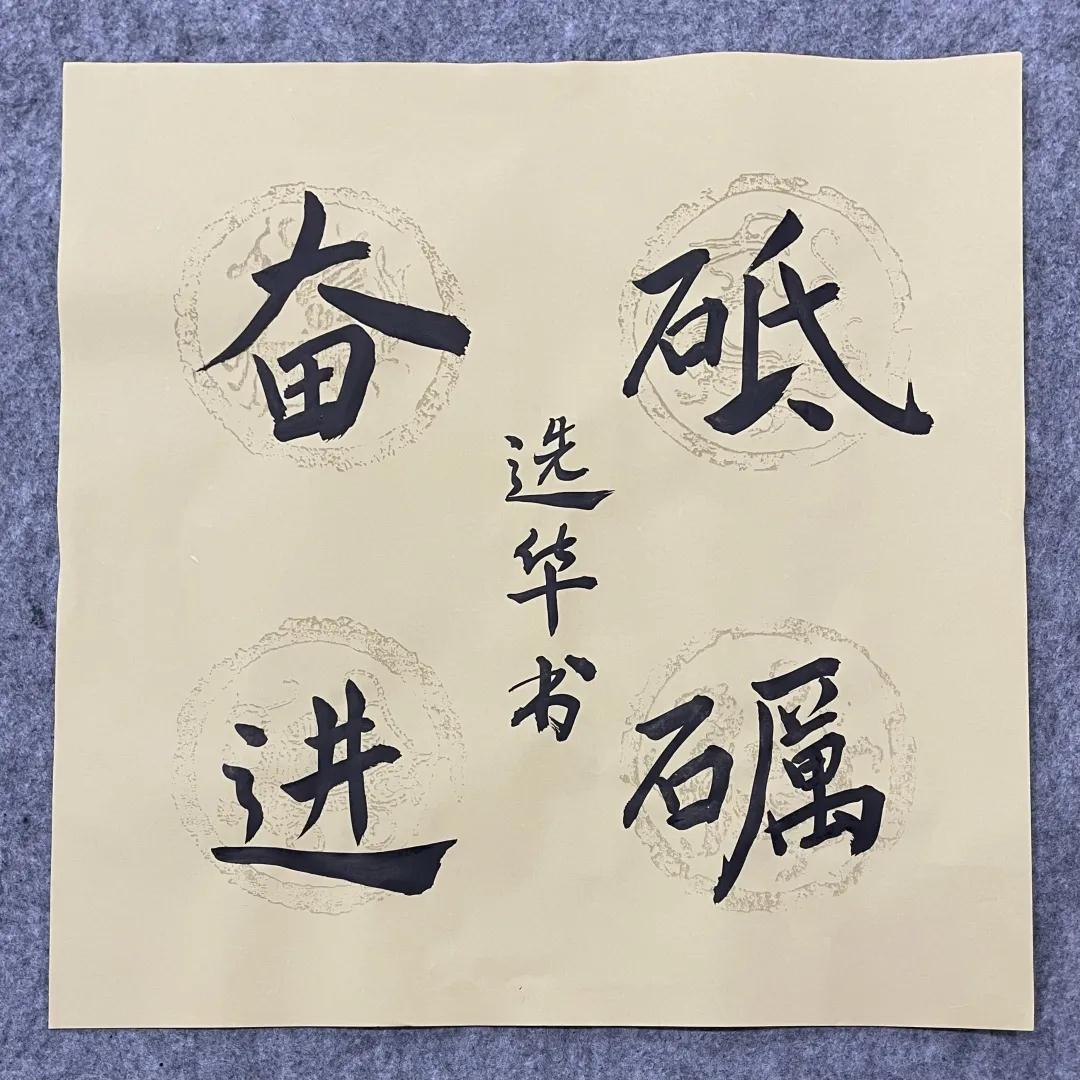 砥砺
奋进
选华书